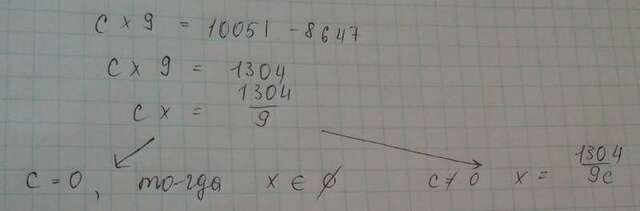 c x 9 = 10051 - 8647
c x 9 = 1304
c x = 1304/9
c = 0, то-гда x ∈ ∅ c ≠ 0 x = 1304/9c